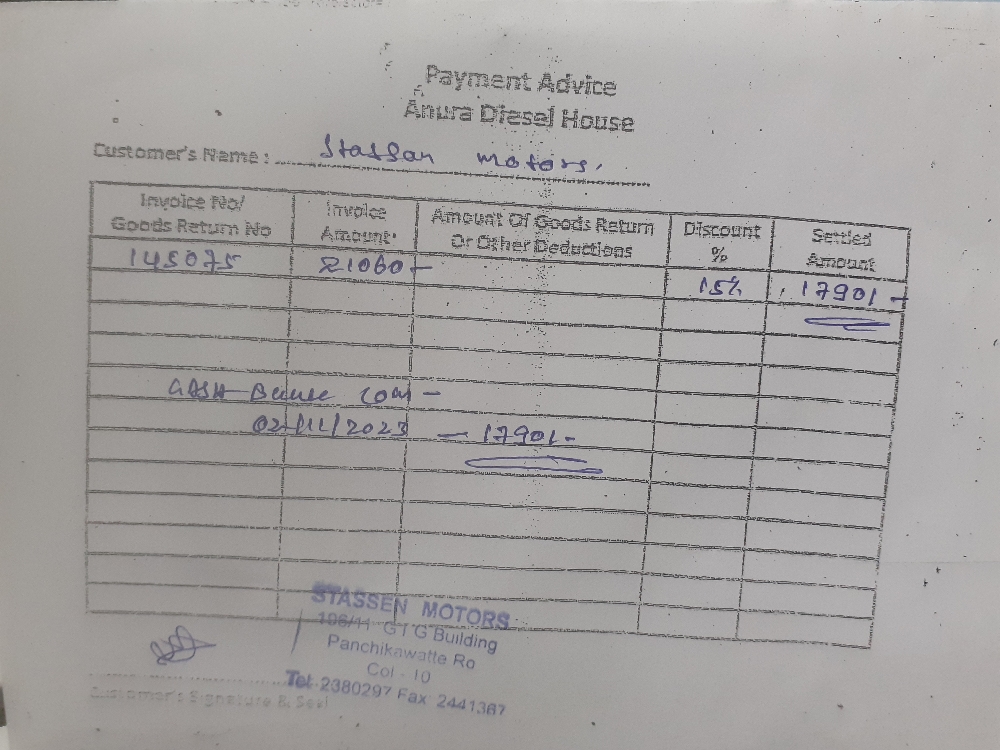 Payment Advice
Anura Diesel House
Customer's Name : Stassan motors.
Invoice No/ Goods Return No Invoice Amount Amount Of Goods Return Or Other Deductions Discount % Settled Amount
145075 21060- 15% 17901-
CASH
02/11/2023 - 17901-
STASSEN MOTORS
106/11 G I G Building
Panchikawatte Ro
Col - 10
Tel 2380297 Fax 2441367
Customer's Signature & Seal